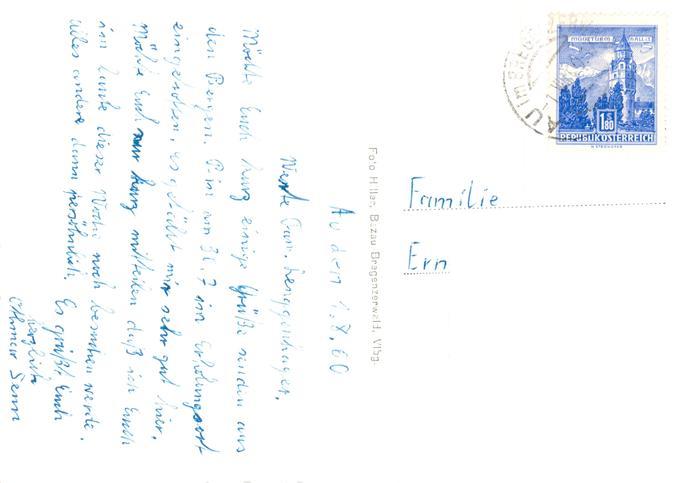 Au den 1.8.60
Werte Fam. Lenggenhager,
Möchte Euch kurz einige Grüße senden aus
den Bergen. Bin am 31.7 im Erholungsort
eingetroffen, es gefällt mir sehr gut hier,
Möchte Euch nur kurz mitteilen daß ich Euch
im Laufe dieser Woche noch besuchen werde.
Alles andere dann persönlich. Es grüßt Euch
herzlich
Othmar Senn
Foto Hiller, Bezau Bregenzerwald, Vlbg.
MÜNZTURM HALL i.T.
S
1.80
REPUBLIK ÖSTERREICH
AU IM BREGENZERW
Familie
Ern